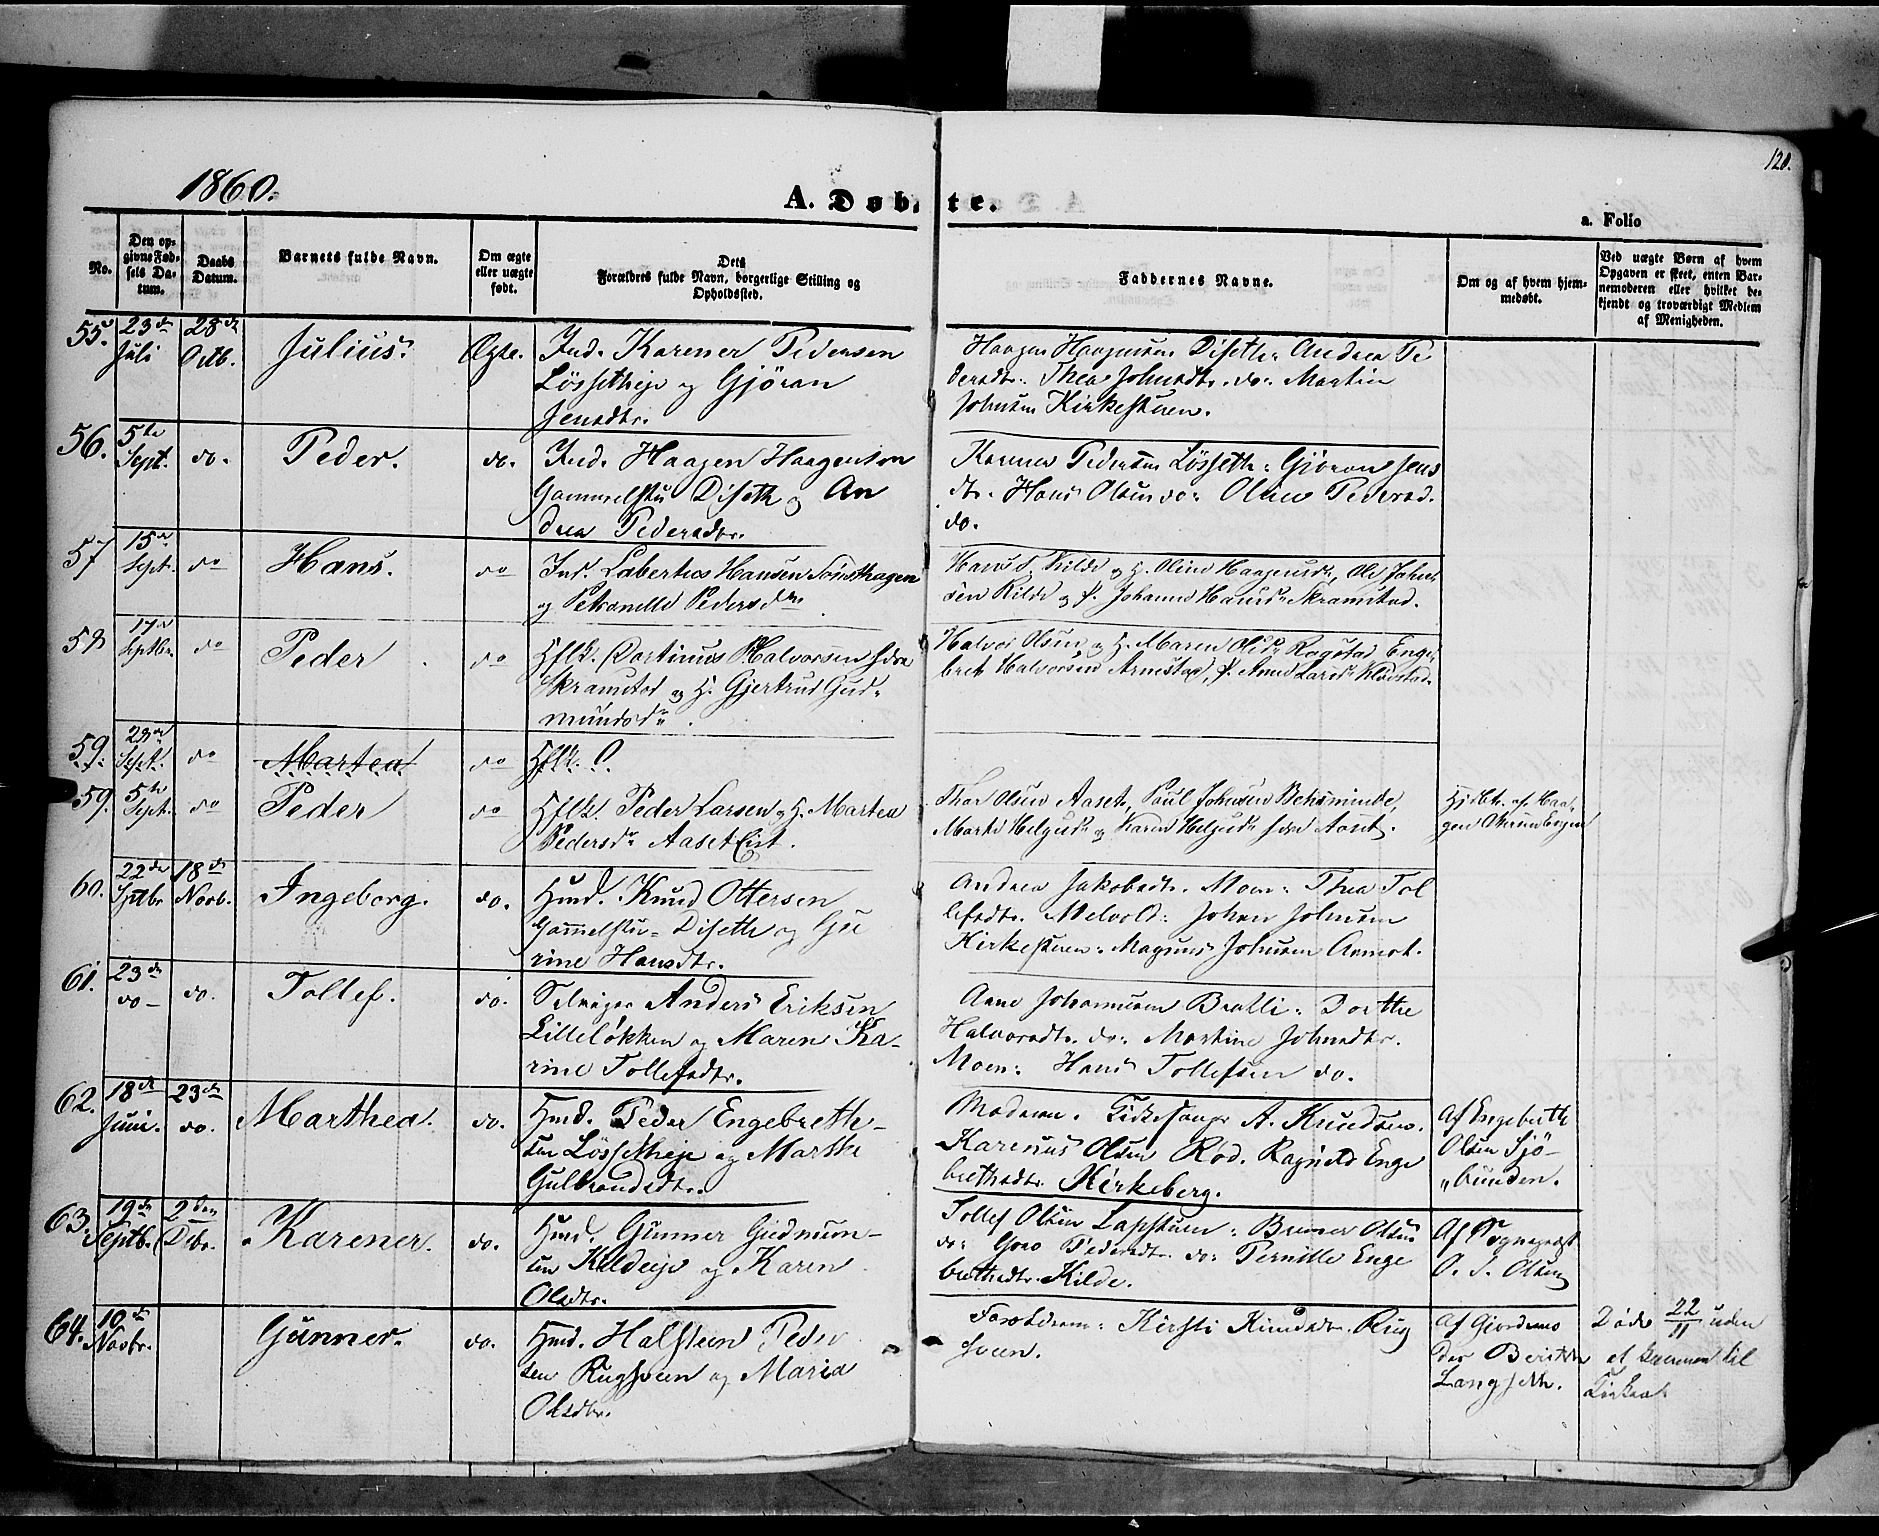 120.
1860.
A. Døb- te.
a. Folio
No.
Den op-
givne Fød-
sels Da-
tum.
Daabs
Datum.
Barnets fulde Navn.
Om ægte
eller uægte
født.
Dets
Forældres fulde Navn, borgerlige Stilling og
Opholdssted.
Faddernes Navne.
Om og af hvem hjem-
medøbt.
Ved uægte Børn af hvem
Opgaven er skeet, enten Bar-
nemoderen eller hvilket be-
kjendt og troværdigt Medlem
af Menigheden.
55.
23de
Juli
28de
Octb.
Julius.
Ægte.
Ind. Karener Pedersen
Løssetheje og Gjøran
Jensdtr.
Haagen Haagensen Diseth: Andrea Pe
dersdtr: Thea Johnsdtr. do: Martin
Johnsen Kirkestuen.
56.
5te
Sept.
do.
Peder.
do.
Ind. Haagen Haagensen
Gammelstu Diseth og An
drea Pedersdtr.
Karener Pedersen Løsseth: Gjøran Jens
dtr. Hans Olsen do: Oline Pedersd.
do.
57
15de
Sept.
do
Hans.
do
Ind. Labertus Hansen
og Petronelle Pedersdtr
Kilde og H. Oline Haagensdr, Ole Johan
sen Kilde og P. Johanne Hansdr Skramstad.
58
17de
Septbr.
do
Peder
do
Hflk. Martinus Halvorsen
Skramstad og H. Gjertrud Gud-
mundsdr.
Halvor Olsen og H. Maren Olsdr Rogstad Enge
bret Halvorsen Arnestad, P. Anne Larsdr
59.
Sept.
do
Marthea
do
Hflk.
59.
5te
Sept.
do
Peder
do
Hflk. Peder Larsen og H. Marthea
Pedersdr Aaset Eier.
Thor Olsen Aaset, Poul Johnsen
Marte Helgesdr og Karen Helgesdr Aaset.
Hjdbt. af Haa-
gen
60.
22de
Septbr
18de
Novb.
Ingeborg.
do.
Hmd. Knud Ottersen
Gammelstu- Diseth og Gu
rine Hansdtr.
Andrea Jakobsdtr. Moen: Thea Tol
lefsdtr. Melvold: Johan Johnsen
Kirkestuen: Magnus Johnsen Annert.
61.
23de
do-
do.
Tollef.
do.
Selveier Anders Eriksen
Lilleløkken og Maren Ka-
rine Tollefsdtr.
Arne Johannesen Bratli: Dorthe
Halvorsdtr. do: Martine Johnsdtr.
Moen: Hans Tollefsen do.
62.
18de
Juni.
23de
do.
Marthea.
do.
Hmd. Peder Engebreth-
sen Løssetheje og Marthe
Gulbrandsdtr.
Moderen. Kirkesanger A. Knudsen.
Karenus Olsen Rød. Ragnild Enge
brethsdtr. Kirkeberg.
Af Engebreth
Olsen Sjø-
"bunden.
63.
19de
Septb.
2den
Decbr.
Karener.
do.
Hmd. Gunner Gudmun-
sen Kildeeje og Karen
Olsdtr.
Tollef Olsen Lapstuen: Berner Olsen
do: Goro Pedersdtr. do: Pernille Enge
brethsdtr. Kilde.
Af Sognepræst
O. S. Olsen
64.
10de
Novbr.
Gunner.
do.
Hmd. Halsteen Peder
sen Rugsveen og Maria
Olsdtr.
Forældrene: Kirsti Knudsdtr. Rug
sveen.
Af Gjordemo
der Berthe
Langseth.
Døde 22/11 uden
at kommen til
Kirken